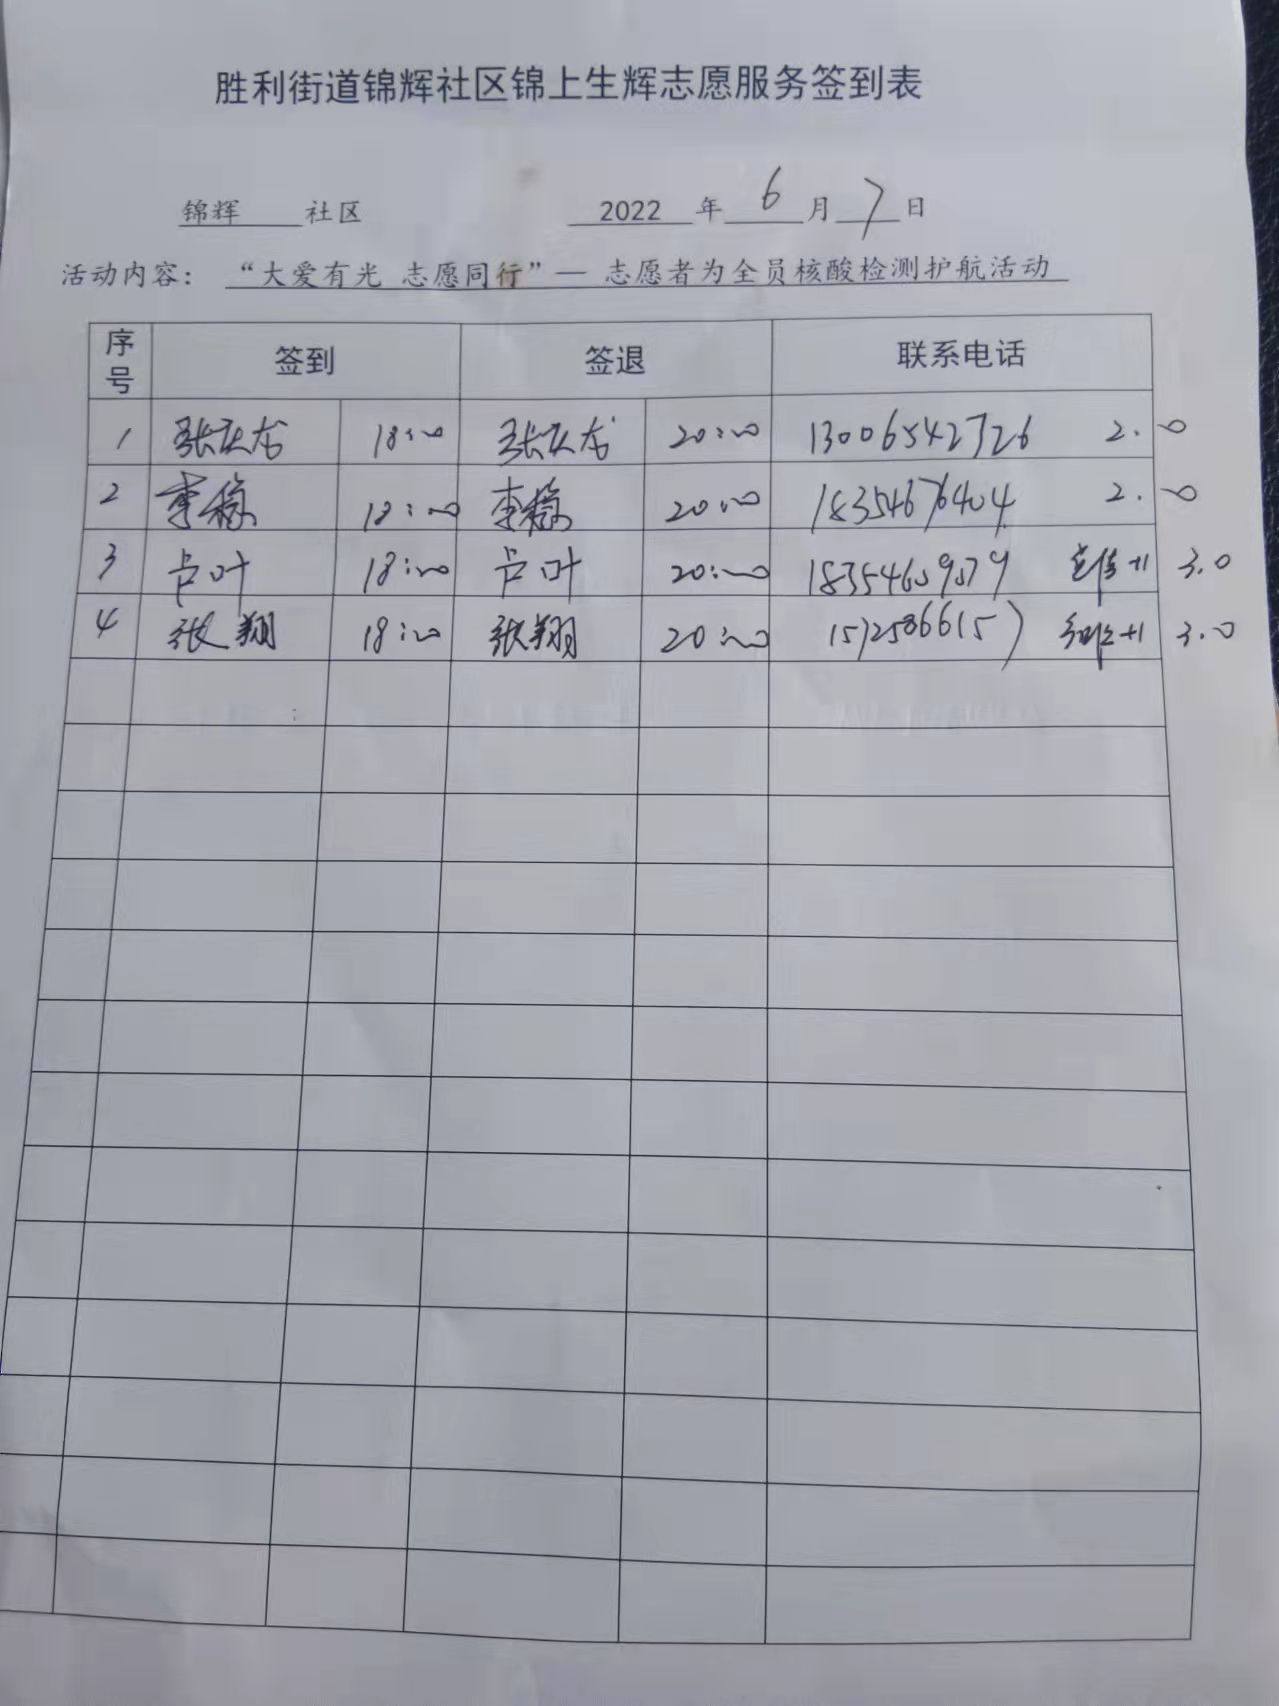 胜利街道锦辉社区锦上生辉志愿服务签到表
锦辉 社区 2022 年 6 月 7 日
活动内容： “大爱有光 志愿同行”— 志愿者为全员核酸检测护航活动
序号 签到 签退 联系电话
1 18:00 20:00 13006542726 2.0
2 李稳 18:00 李稳 20:00 18354676404 2.0
3 卢叶 18:00 卢叶 20:00 18354609579 +1 3.0
4 张翔 18:00 张翔 20:00 15725866157 +1 3.0